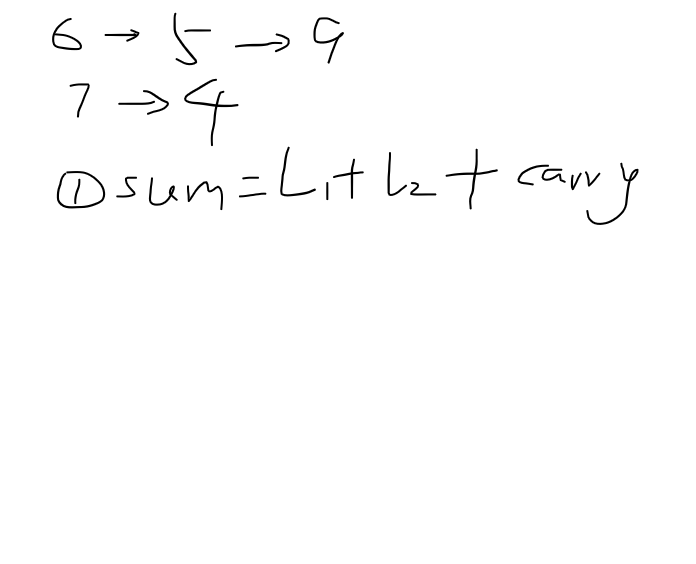 6 → 5 → 9
7 → 4
① sum = L₁ + L₂ + carry